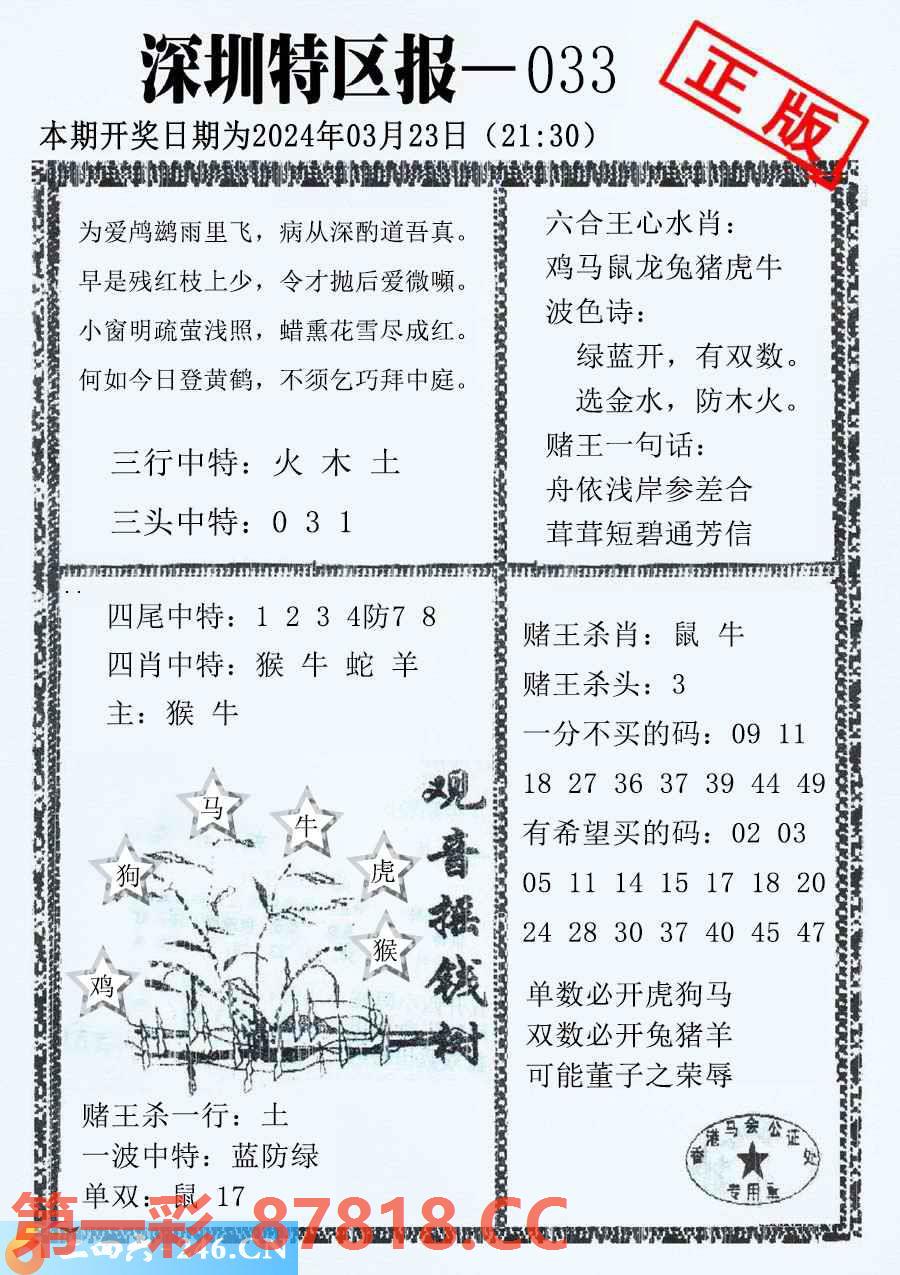 深圳特区报—033
正版
本期开奖日期为2024年03月23日（21:30）
为爱鸬鹚雨里飞，病从深酌道吾真。
早是残红枝上少，令才抛后爱微嚬。
小窗明疏萤浅照，蜡熏花雪尽成红。
何如今日登黄鹤，不须乞巧拜中庭。
三行中特：火 木 土
三头中特：0 3 1
六合王心水肖：
鸡马鼠龙兔猪虎牛
波色诗：
绿蓝开，有双数。
选金水，防木火。
赌王一句话：
舟依浅岸参差合
茸茸短碧通芳信
四尾中特：1 2 3 4防7 8
四肖中特：猴 牛 蛇 羊
主：猴 牛
马
牛
狗
虎
猴
鸡
观音摇钱树
赌王杀一行：土
一波中特：蓝防绿
单双：鼠 17
赌王杀肖：鼠 牛
赌王杀头：3
一分不买的码：09 11
18 27 36 37 39 44 49
有希望买的码：02 03
05 11 14 15 17 18 20
24 28 30 37 40 45 47
单数必开虎狗马
双数必开兔猪羊
可能董子之荣辱
香港马会公证处
专用章
第一彩 87818.CC
246.CN